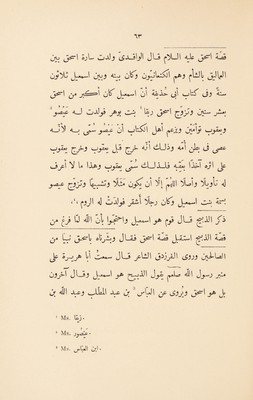 ٦٣
قصّة اسحق عليه السلام قال الواقدىّ ولدت سارة اسحق بين
العماليق بالشأم وهم الكنعانيّون وكان بينه وبين اسمعيل ثلاثون
سنةً وفى كتاب أبى حُذيفة أنّ اسمعيل كان أكبر من اسحق
بعشر سنين وتزوّج اسحق ربقا¹ بنت بوهر فولدت له عَيْصُو²
ويعقوب توأمَيْن ويزعم أهل الكتاب أنّ عَيْصُو سُمّى به لأنّه
عصى فى بطن أُمّه وذلك أنّه خرج قبل يعقوب وخرج يعقوب
على اثره آخذًا بعَقِبه فلذلك سُمّى يعقوب وهذا ما لا أعرف
له تأويلًا وأصلًا اللهُمّ إلّا أن يكون مَثَلًا وتشبيهًا وتزوّج عيصو
بسمة بنت اسمعيل وكان رجلًا أشقر فولدتْ له الروم
ذكر الذبيح قال قوم هو اسمعيل واحتجّوا بأنّ الله لمّا فرغ من
قصّة الذبح استقبل قصّة اسحق فقال وبشّرناه باسحق نبيًّا من
الصالحين وروى الفرزدق الشاعر قال سمعتُ أبا هريرة على
منبر رسول الله صلعم يقول الذبيح هو اسمعيل وقال آخرون
بل هو اسحق ويُروى عن العبّاس³ بن عبد المطّلب وعبد الله بن
¹ Ms. رَبَقا.
² Ms. عَيْصُور.
³ Ms. ابن العبّاس.